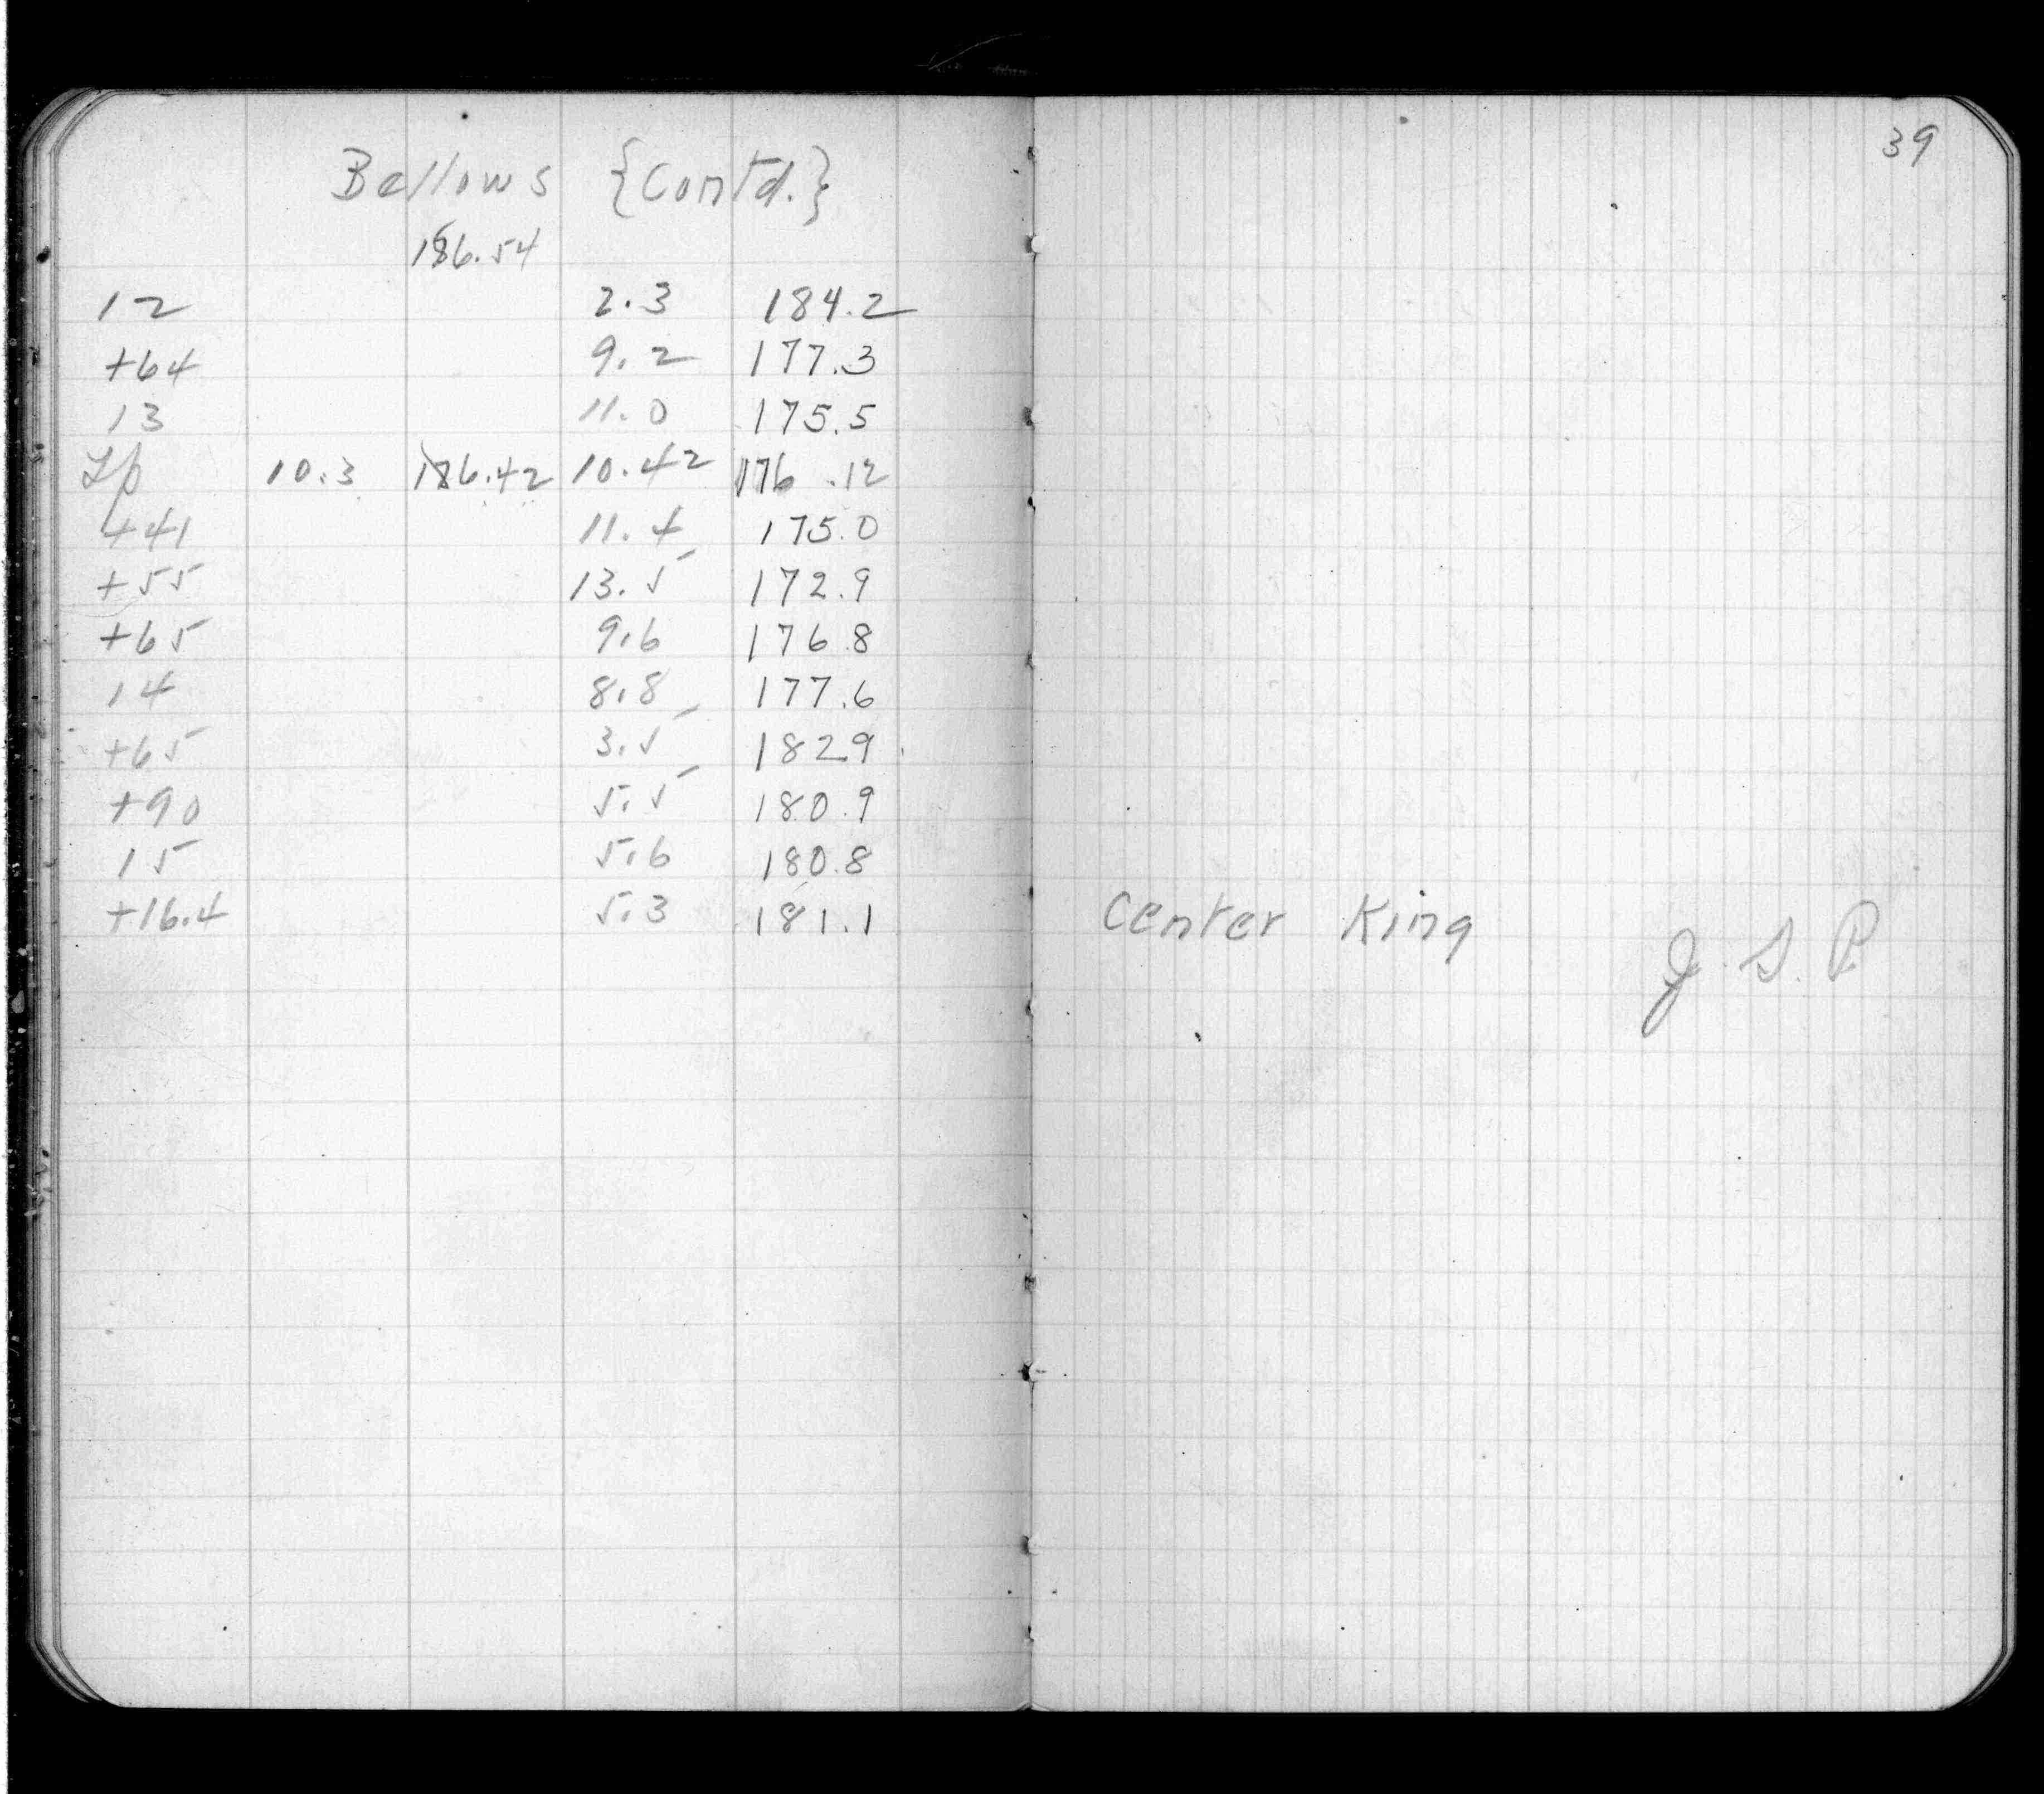 39
Bellows {Contd.}
186.54
12 2.3 184.2
+64 9.2 177.3
13 11.0 175.5
Tp 10.3 186.42 10.42 176.12
+41 11.4 175.0
+55 13.5 172.9
+65 9.6 176.8
14 8.8 177.6
+65 3.5 182.9
+90 5.5 180.9
15 5.6 180.8
+16.4 5.3 181.1 Center King
J. S. P.